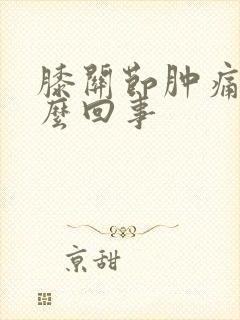 膝關節肿痛
麼回事
京甜